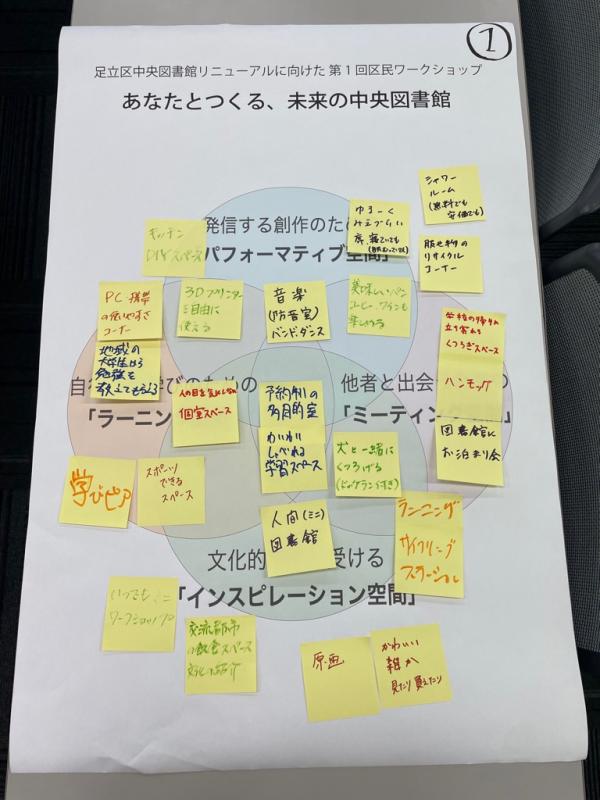 ①
足立区中央図書館リニューアルに向けた 第1回区民ワークショップ
あなたとつくる、未来の中央図書館
シャワー
ルーム
(無料でも
安価でも)
ゆるーく
席、寝ていても
リサイクル
コーナー
キッチン
DIYスペース
発信する創作のため
パフォーマティブ空間」
PC 携帯
の使いやすさ
コーナー
3Dプリンター
自由に
使える
音楽
(防音室)
バンド、ダンス
美味しいパン
コーヒー、ワインも
楽しめる
学校の帰りに
立ち寄れる
くつろぎスペース
ハンモック
地域の
大学生から
勉強を
教えてもらえる
学びのための
「ラーニン
人の目を気にしない
個室スペース
予約制の
多目的室
わいわい
しゃべれる
学習スペース
他者と出会
「ミーティン
犬と一緒に
くつろげる
(ドッグランつき)
図書館に
お泊まり会
学びピア
スポーツ
できる
スペース
人間(ミニ)
図書館
ランニング
サイクリング
ステーション
文化的
受ける
「インスピレーション空間」
いつでもミニ
ワークショップ
交流都市
の飲食スペース
文化の紹介
原画
かわいい
雑貨
見たり買えたり